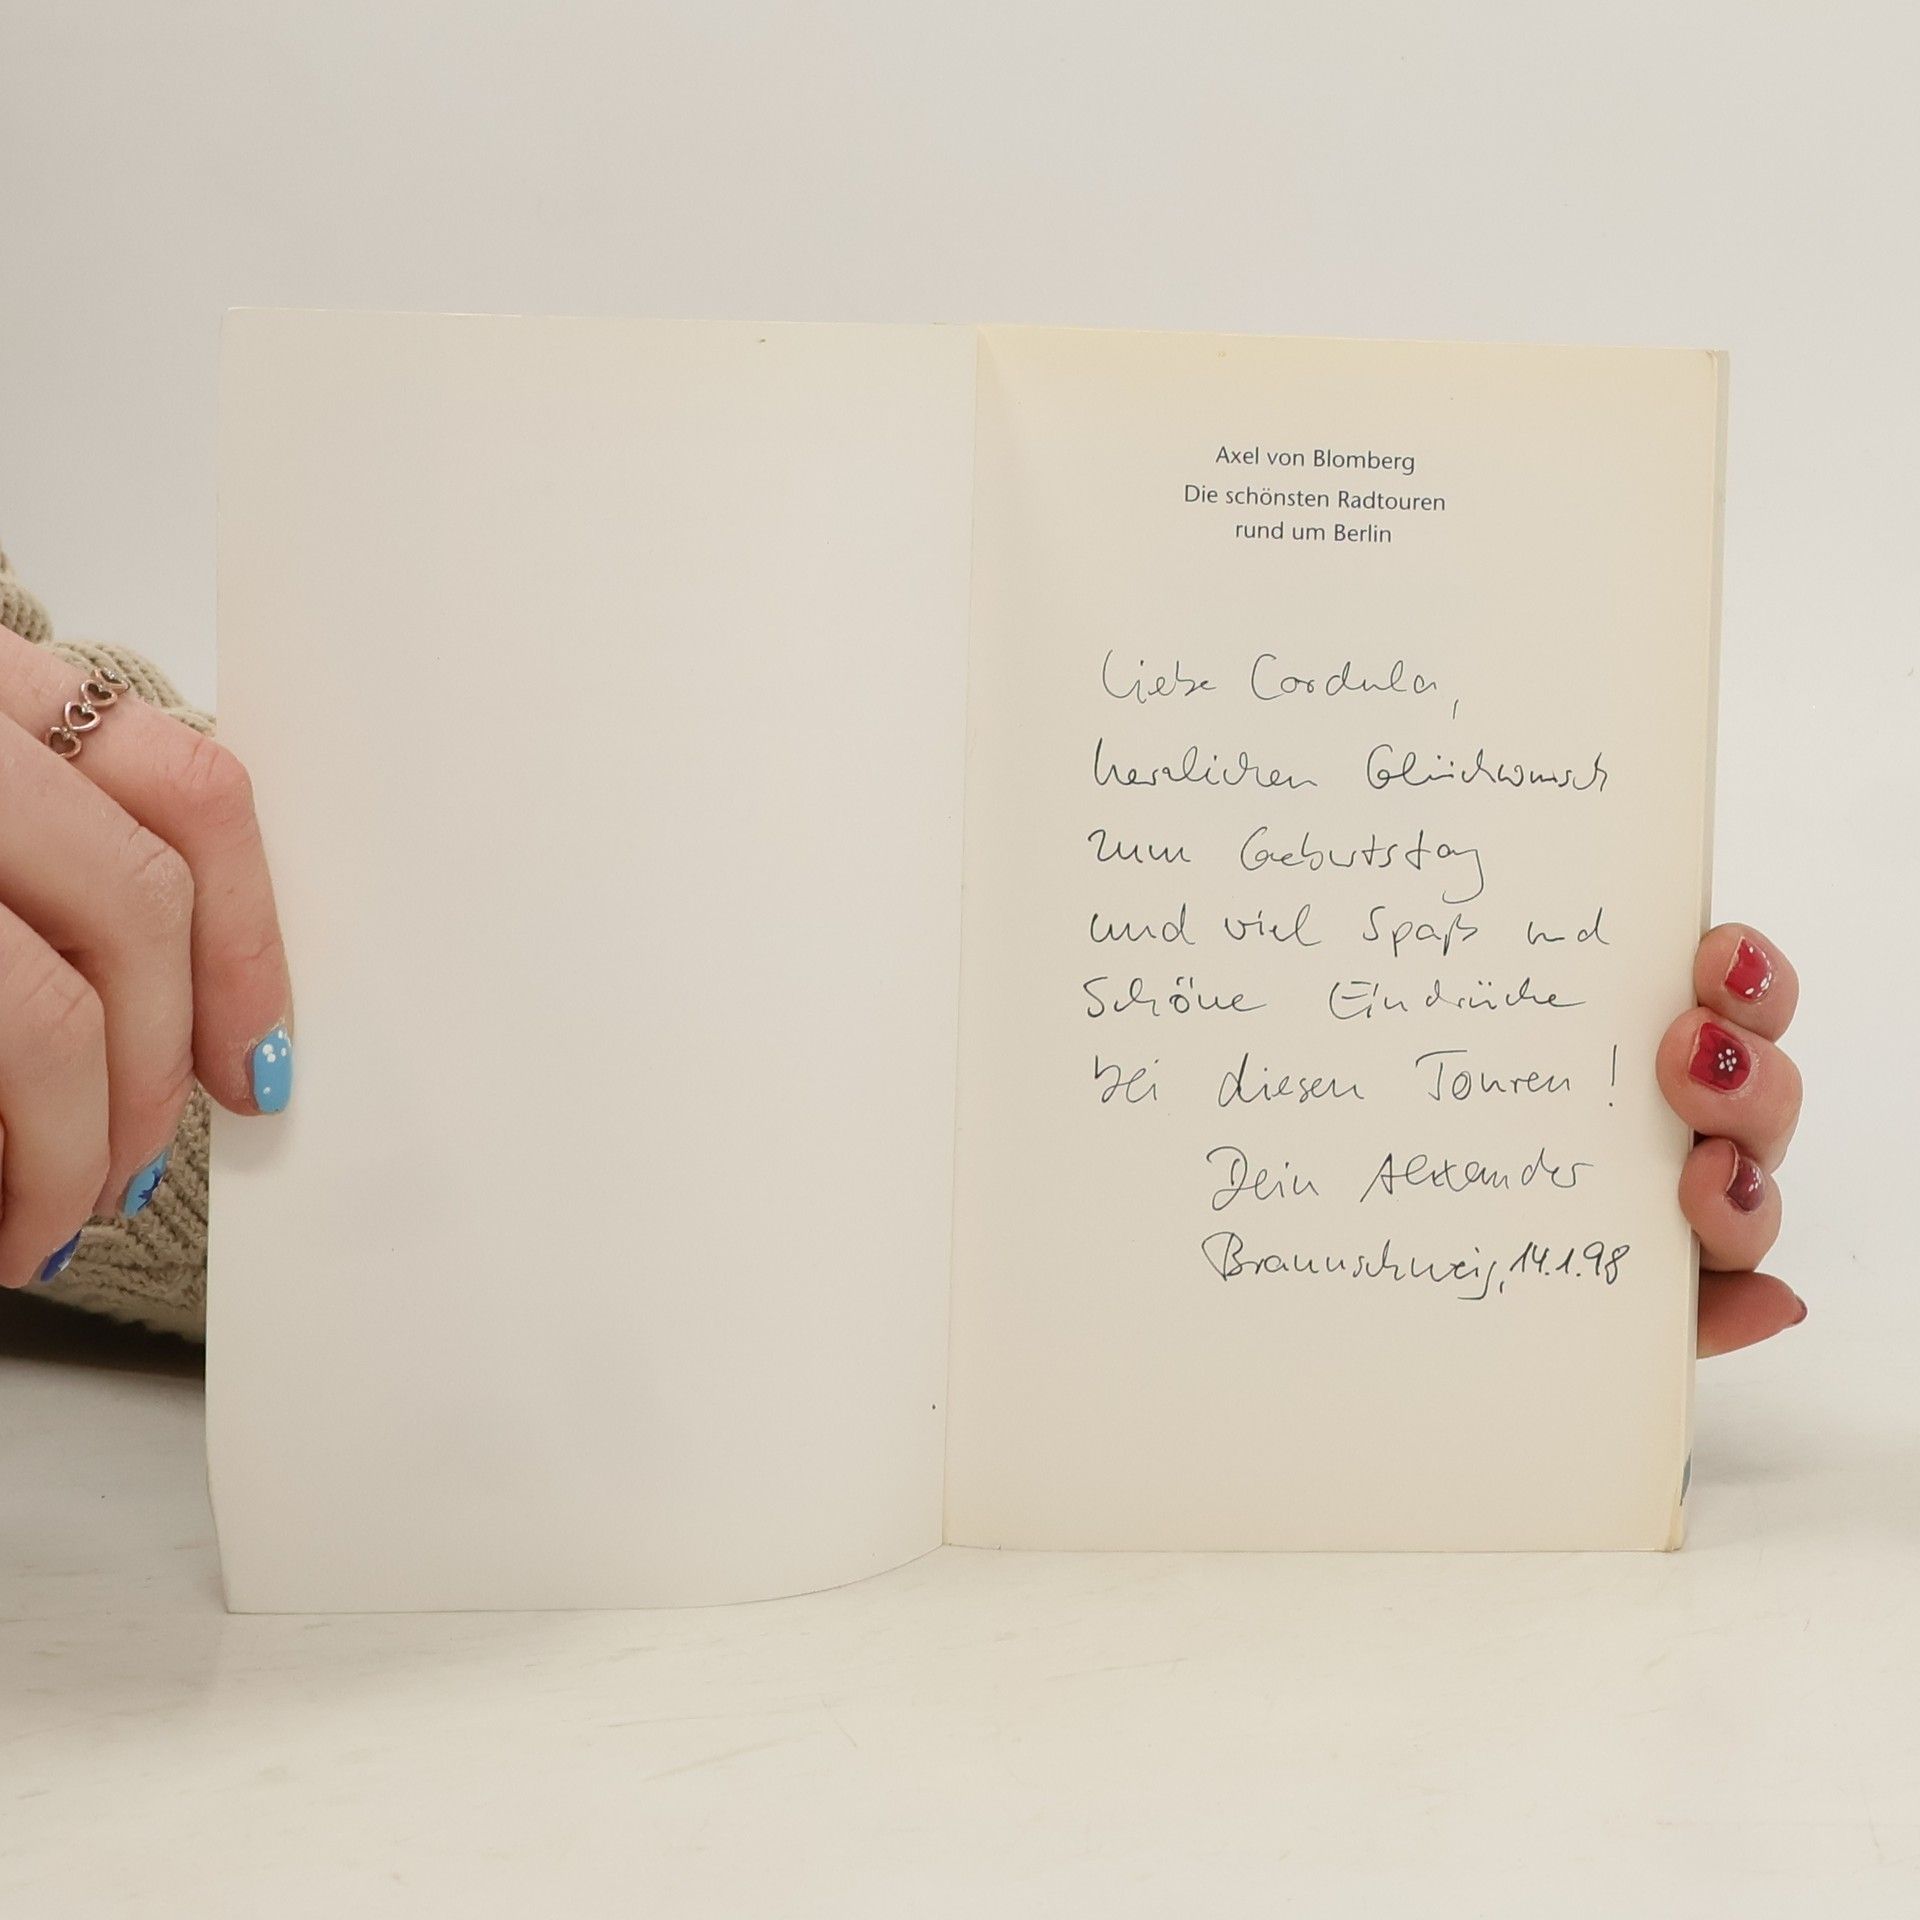 Axel von Blomberg
Die schönsten Radtouren
rund um Berlin
Liebe Cordula,
herzlichen Glückwunsch
zum Geburtstag
und viel Spaß und
schöne Eindrücke
bei diesen Touren!
Dein Alexander
Braunschweig, 14.1.98